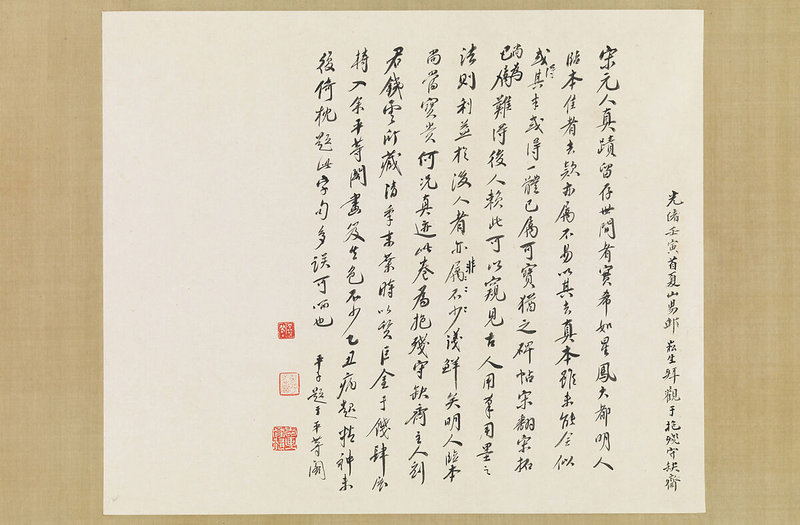 光緒壬寅首夏山昜邱崧生拜觀于抱殘守缺齋
宋元人真蹟留存世間者實希如星鳳大都明人
臨本佳者去款亦屬不易以其去真本雖未能全似
或得其半或得一體已屬可寶猶之碑帖宋翻宋拓
尚為已屬難得後人賴此可以窺見古人用筆用墨之
法則利益於後人者亦屬非不少淺鮮矣明人臨本
尚當寶貴何況真迹此卷為抱殘守缺齋主人劉
君鐵雲所藏清季末葉時以質巨金于肆
持入余平等閣畫笈生色不少乙丑病起精神未
後倚枕題此字句多誤可哂也
平子題于平等閣